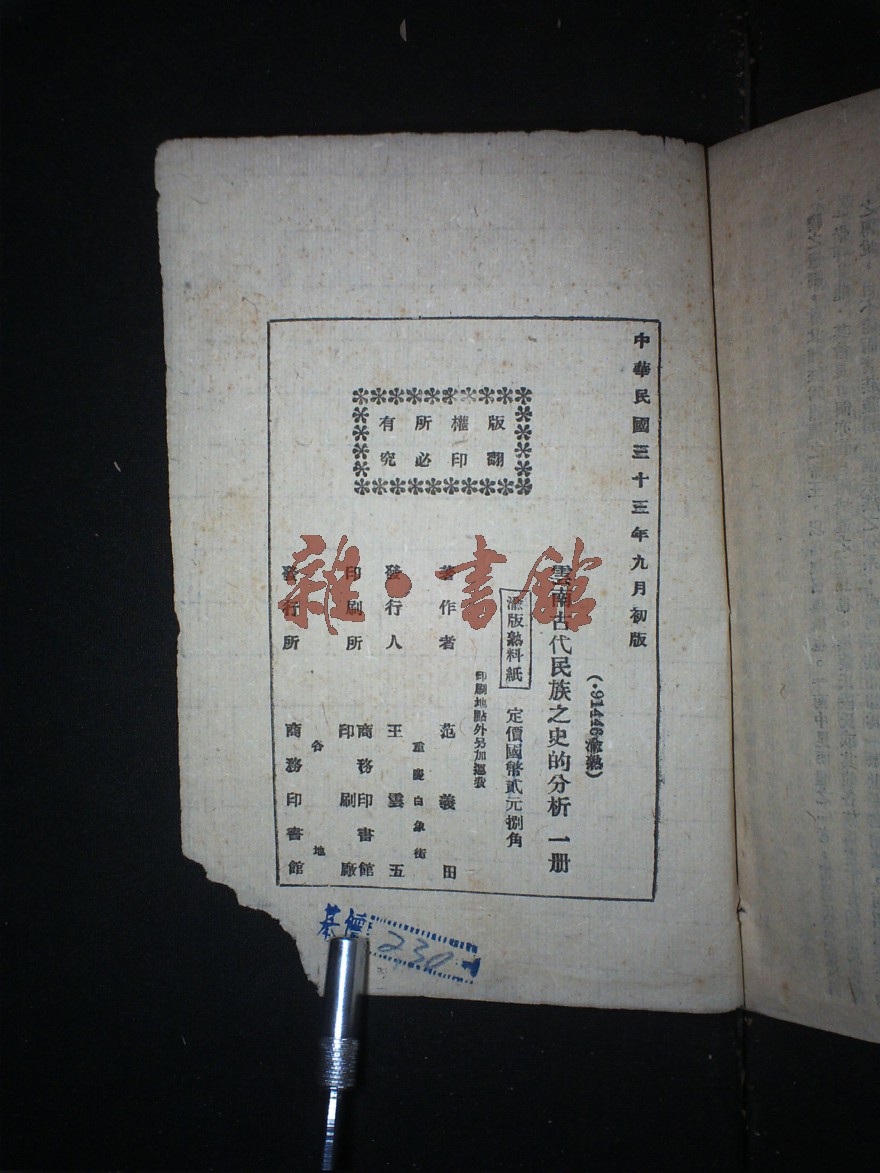 中華民國三十三年九月初版
(·91446滬熟)
雲南古代民族之史的分析 一册
滬版熟料紙
定價國幣貳元捌角
印刷地點外另加運費
著作者 范義田
重慶白象街
發行人 王雲五
印刷所 商務印書館印刷廠
各地
發行所 商務印書館
版權所有
翻印必究
雜·書館
基價
230